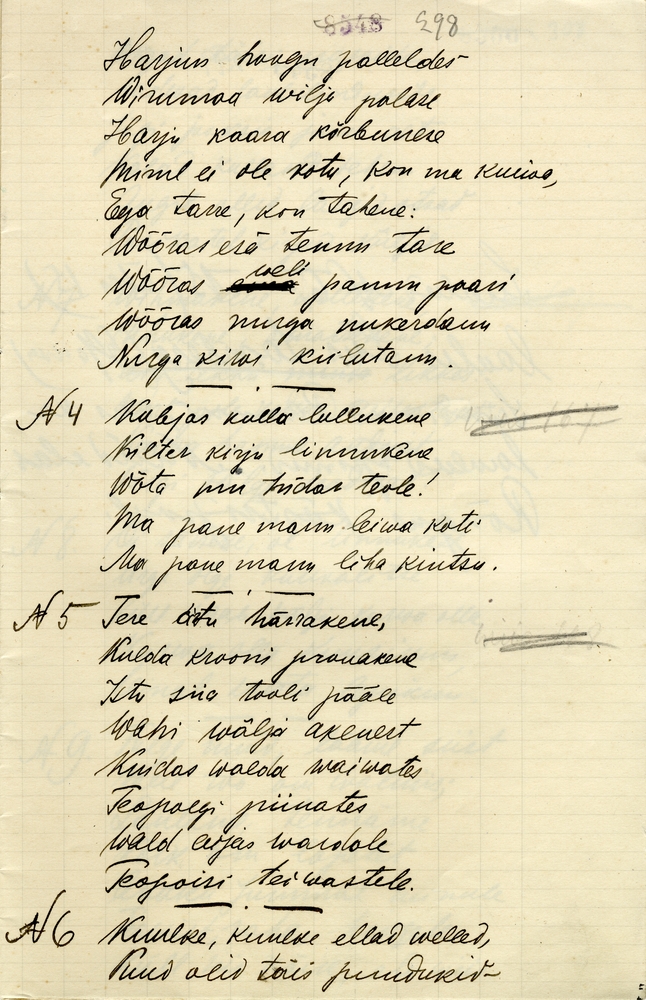 8548 298
Harjus hoogu palleldes
Wirumaa wilja palase
Harju kaara kõrbunese
Minul ei ole kotu, kon ma kuiwa,
Ega tare, kon tahene:
Wõõras esä tennu tare
Wõõras weli pannu paari
Wõõras nurga nukerdanu
Nurga kiwi kiilutanu.
№ 4 Kubjas kulla lullukene
Kilter kirju linnukene
Wõta mu tüdar teole!
Ma pane mano leiwa koti
Ma pane mano liha kintsu.
№ 5 Tere härrakene,
Kulda krooni prouakene
Istu siia tooli pääle
Wahi wälja akenest
Kuidas walda waiwates
Teopoegi piinates
Wald aijas wardole
Teopoisi teiwastele.
№ 6 Kuulke, kuulke ellad welled,
Puud olid täis puudukid-